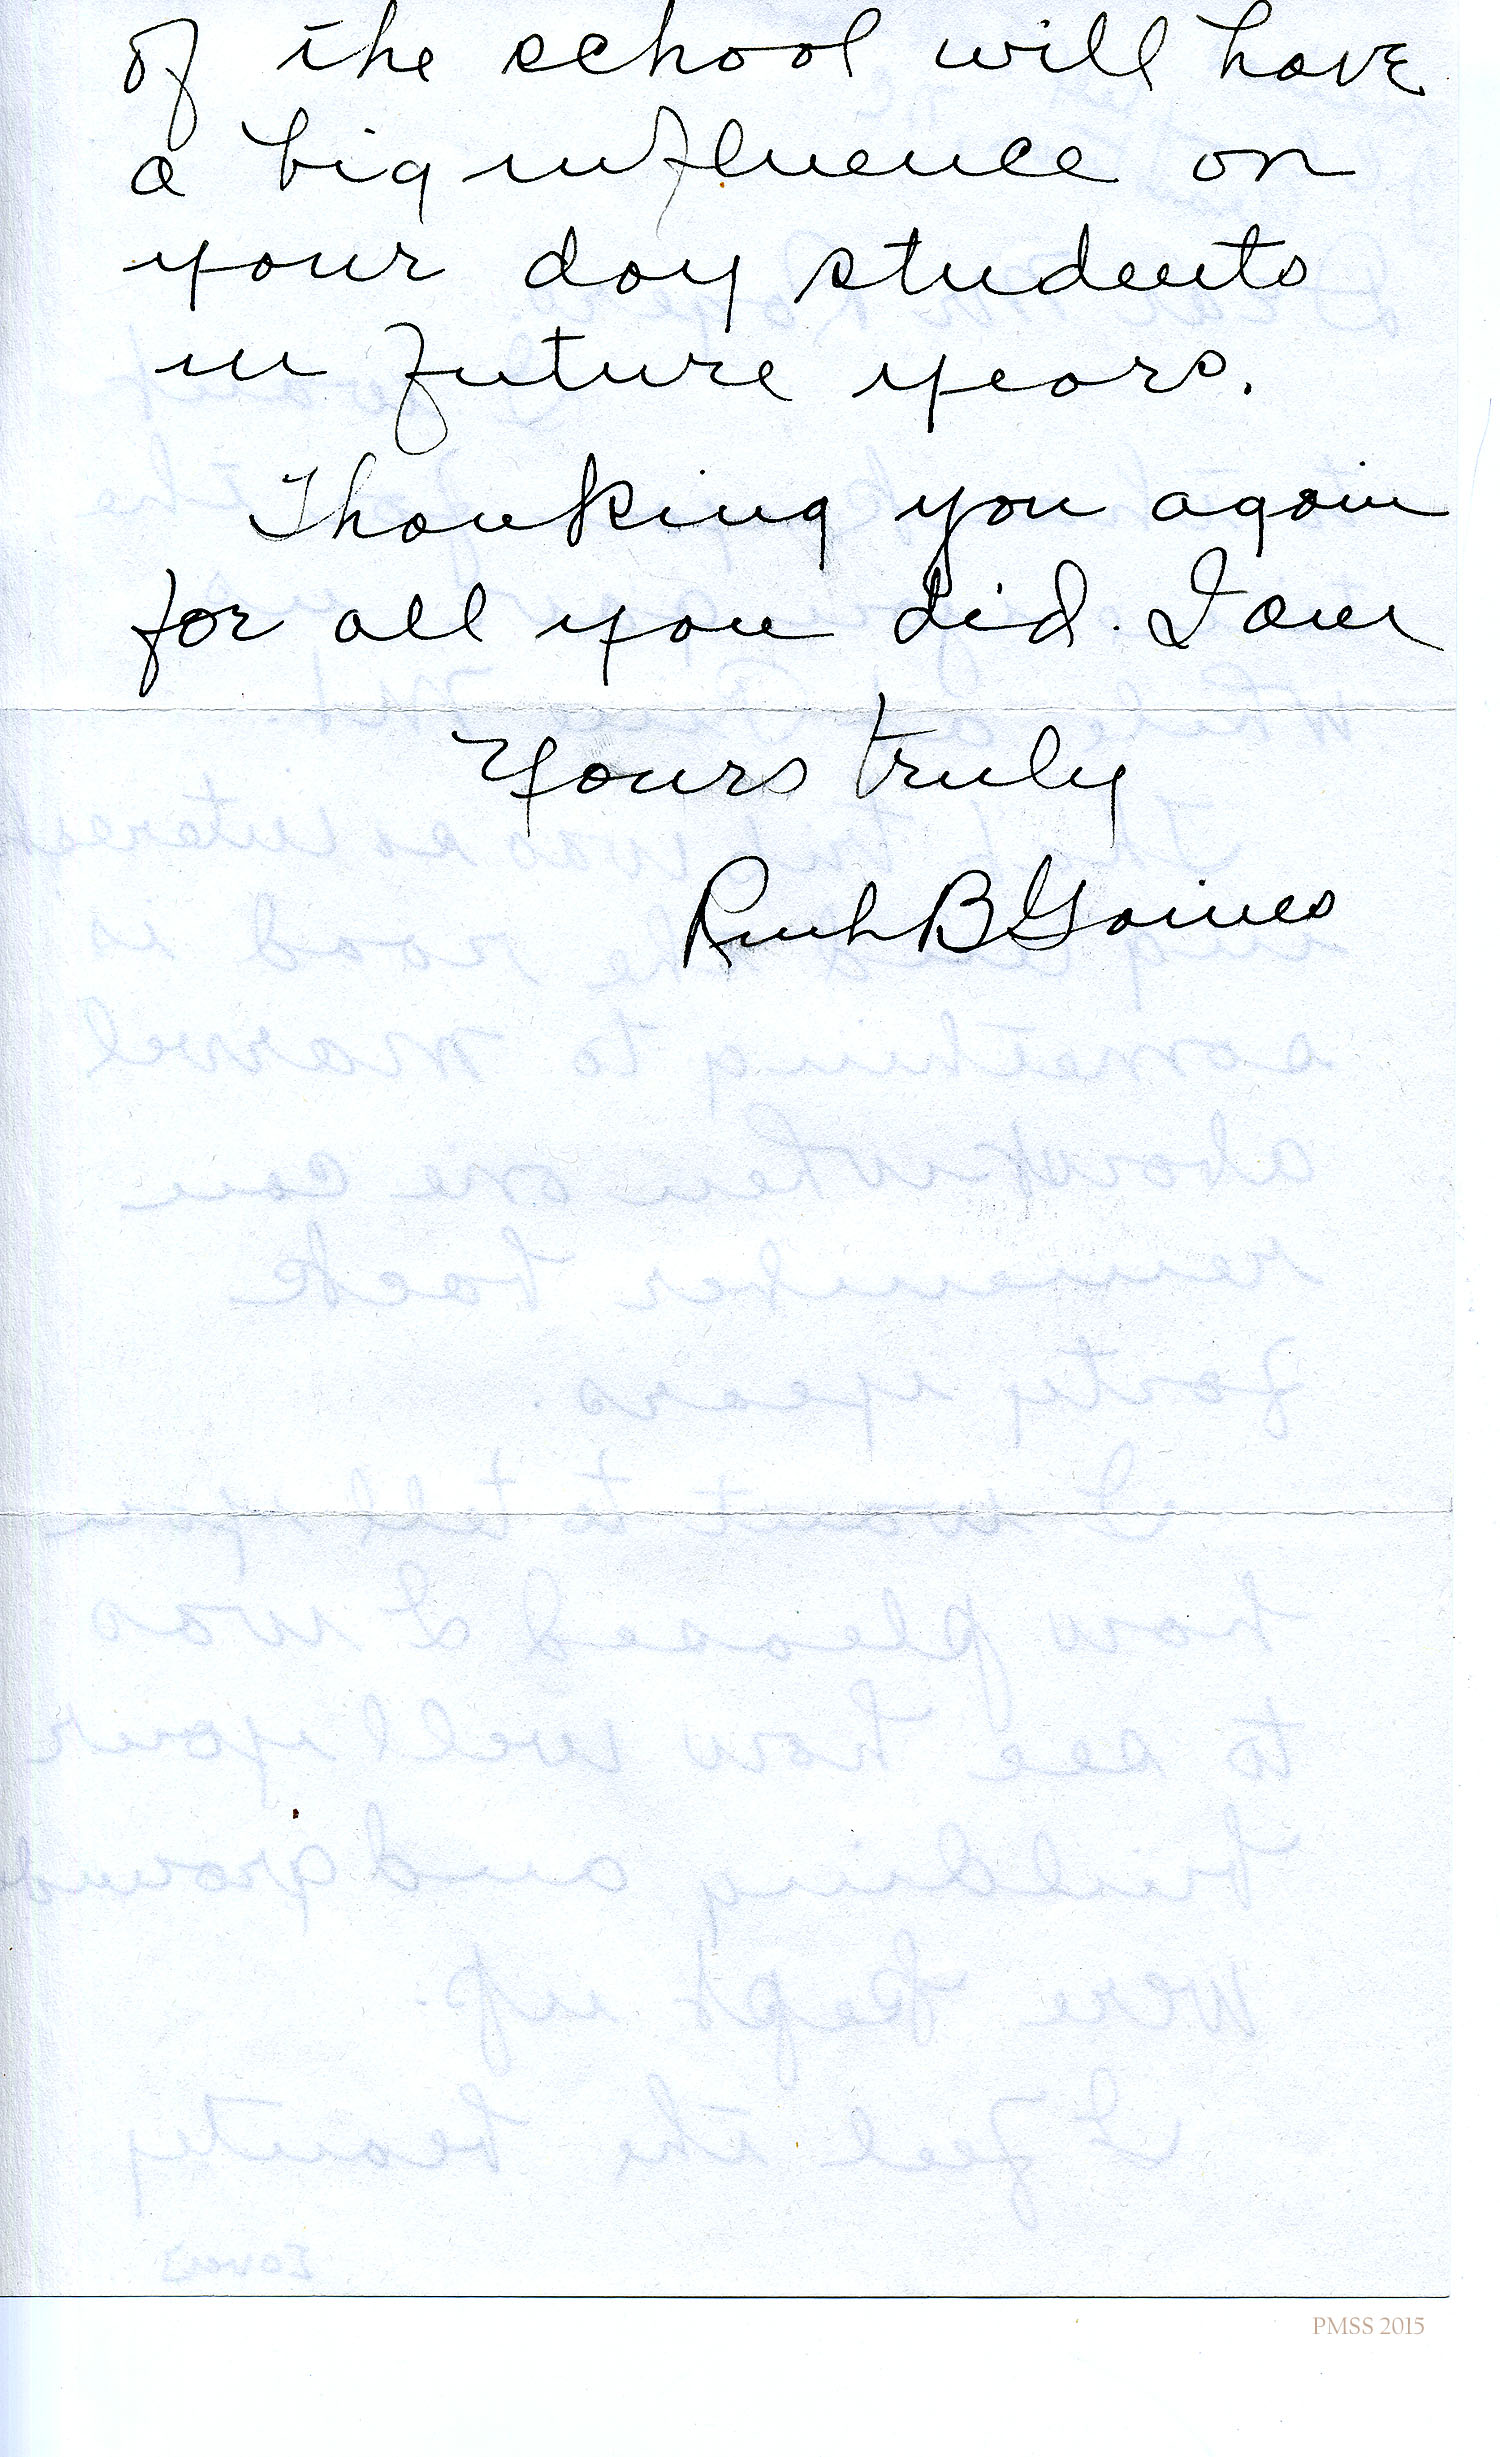 of the school will have
a big influence on
your day students
in future years.
Thanking you again
for all you did. I am
Yours truly
Ruth B Gaines
PMSS 2015